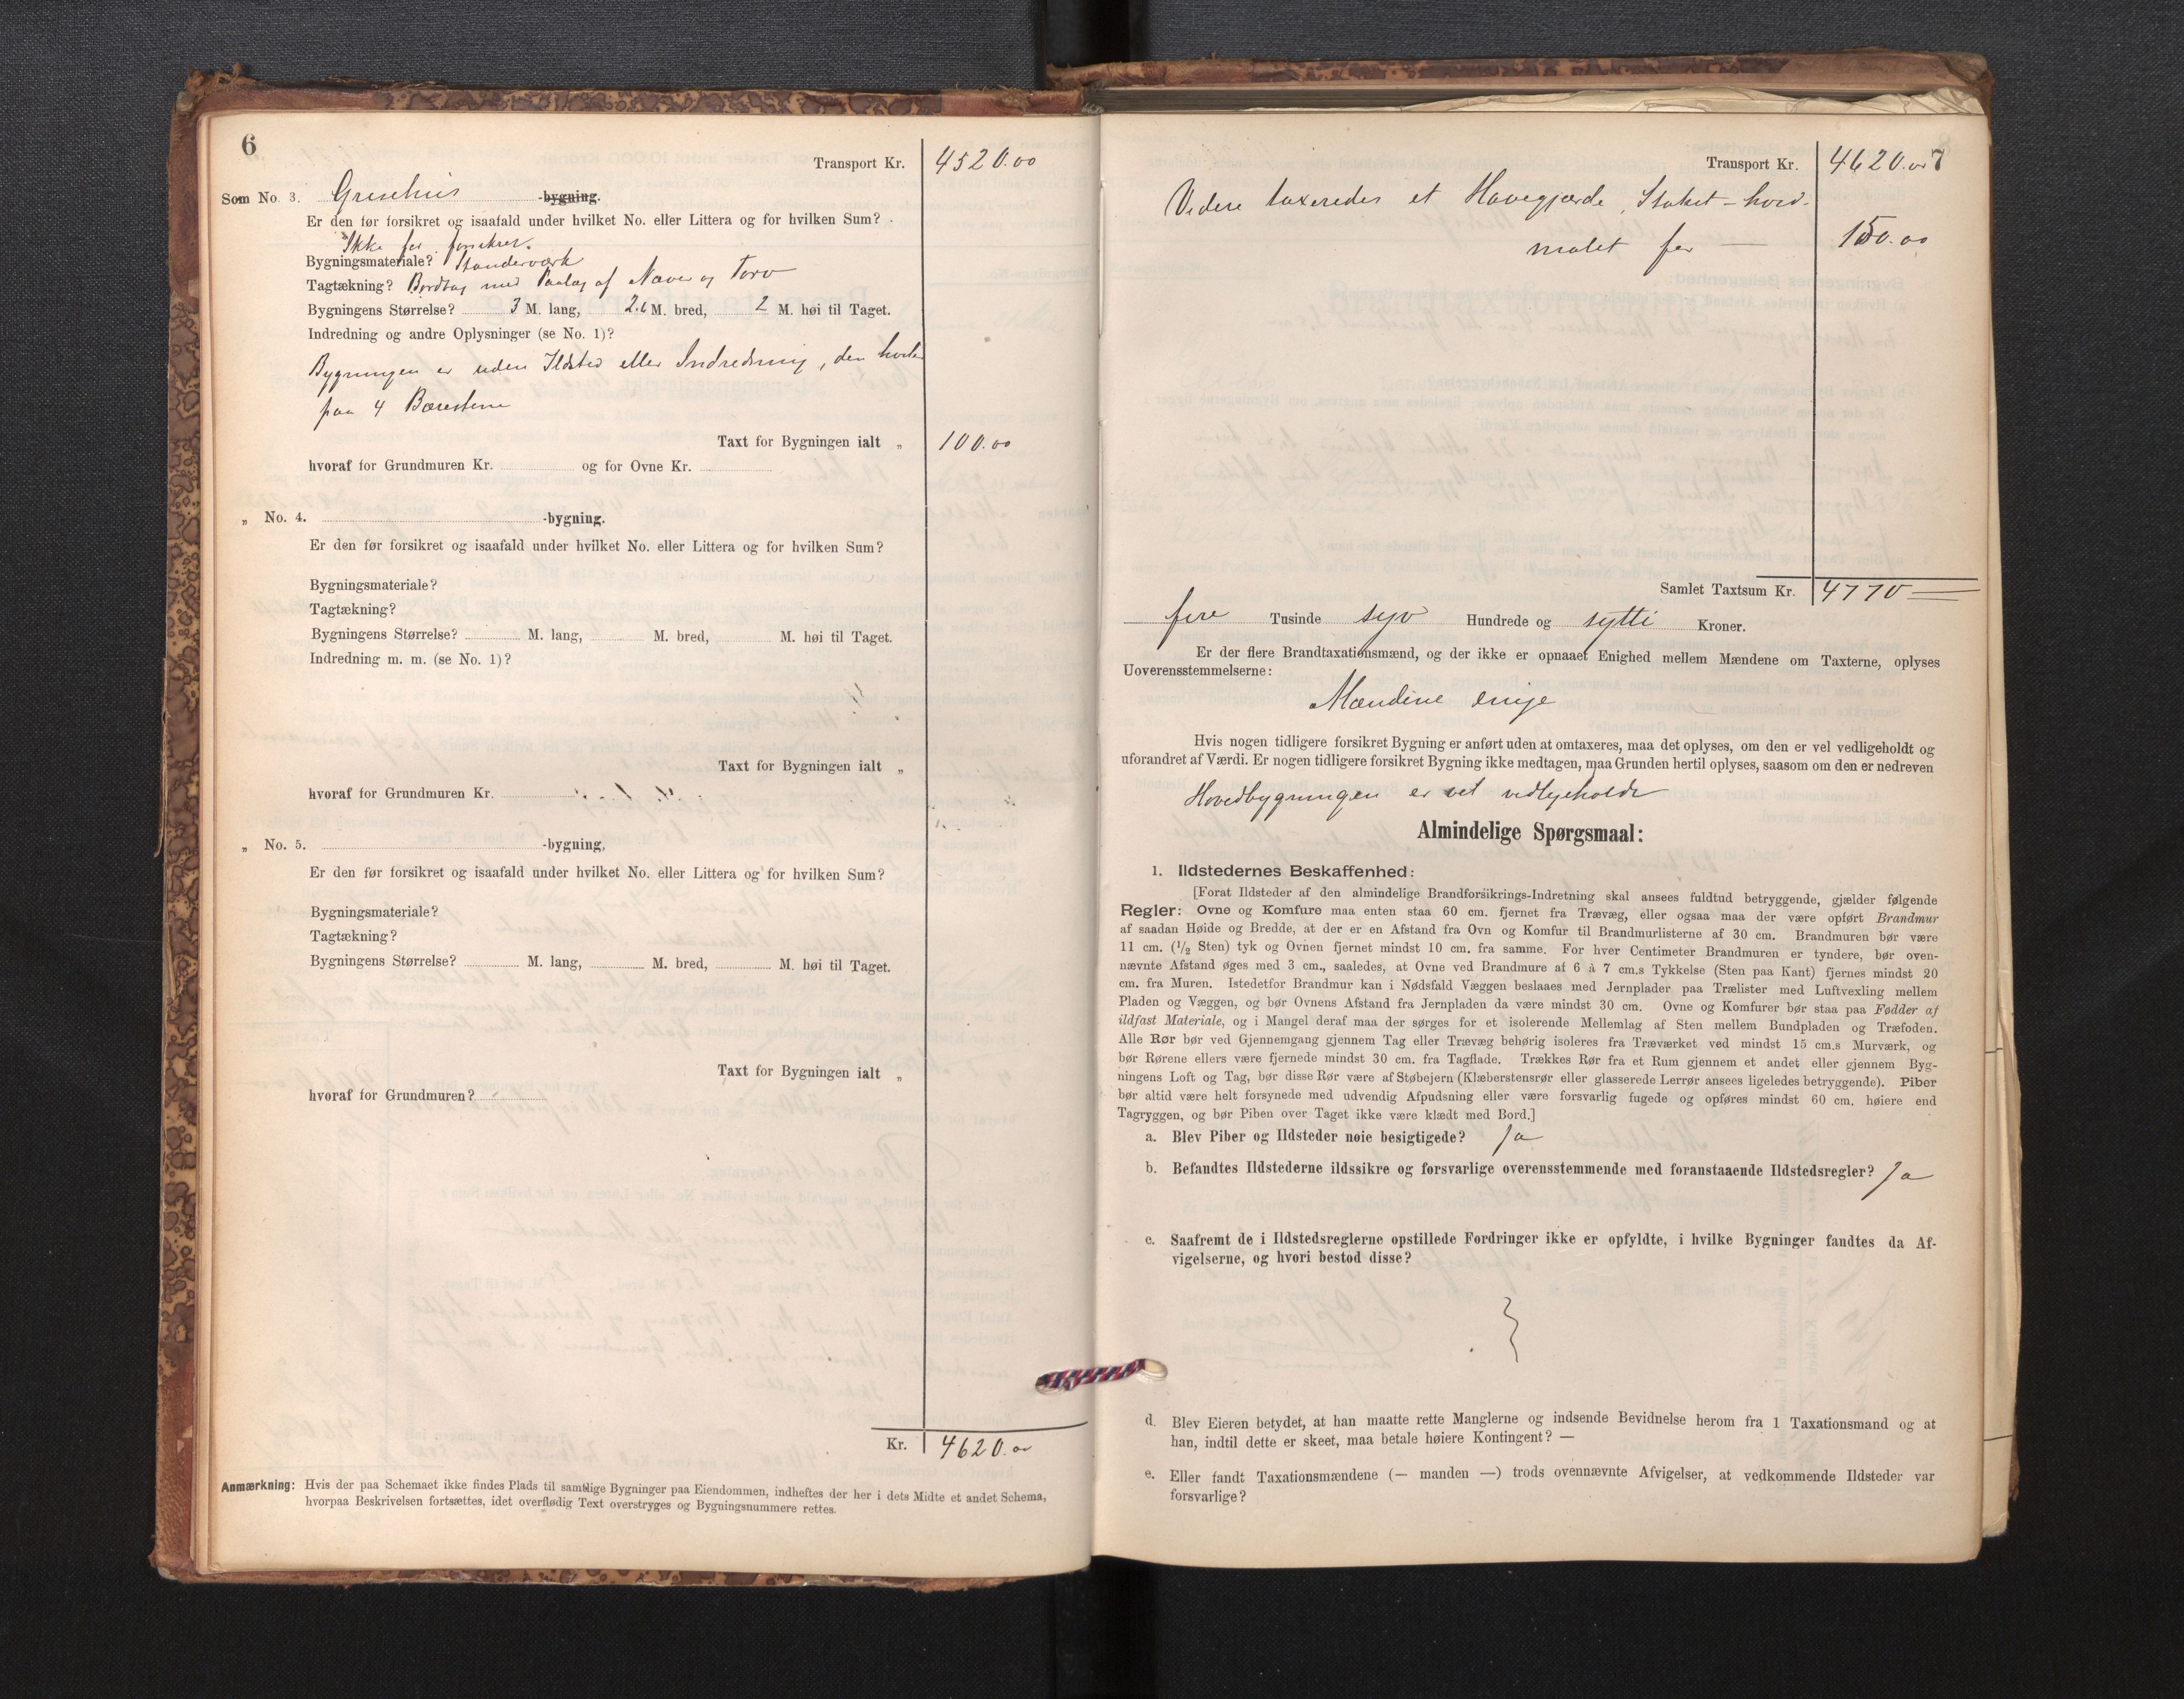 6
Transport Kr. 4520.00
Som No. 3. Grisehus -bygning.
Er den før forsikret og isaafald under hvilket No. eller Littera og for hvilken Sum?
Ikke før forsikret.
Bygningsmateriale? Standerværk
Tagtækning? Bordtag med Paalag af Næver og Torv
Bygningens Størrelse? 3 M. lang, 2.6 M. bred, 2 M. høi til Taget.
Indredning og andre Oplysninger (se No. 1)?
Bygningen er uden Ildsted eller Indredning, den hviler
paa 4 Bærestene
Taxt for Bygningen ialt „ 100.00
hvoraf for Grundmuren Kr. og for Ovne Kr.
„ No. 4. -bygning.
Er den før forsikret og isaafald under hvilket No. eller Littera og for hvilken Sum?
Bygningsmateriale?
Tagtækning?
Bygningens Størrelse? M. lang, M. bred, M. høi til Taget.
Indredning m. m. (se No. 1)?
Taxt for Bygningen ialt „
hvoraf for Grundmuren Kr.
„ No. 5. -bygning,
Er den før forsikret og isaafald under hvilket No. eller Littera og for hvilken Sum?
Bygningsmateriale?
Tagtækning?
Bygningens Størrelse? M. lang, M. bred, M. høi til Taget.
Taxt for Bygningen ialt „
hvoraf for Grundmuren?
Kr. 4620.00
Anmærkning: Hvis der paa Schemaet ikke findes Plads til samtlige Bygninger paa Eiendommen, indheftes der her i dets Midte et andet Schema,
hvorpaa Beskrivelsen fortsættes, idet overflødig Text overstryges og Bygningsnummere rettes.
7
Transport Kr. 4620.00
Videre taxeredes et Havegjærde, Stakit – hvid-
malet for — 150.00
Samlet Taxtsum Kr. 4770
fire Tusinde syv Hundrede og sytti Kroner.
Er der flere Brandtaxationsmænd, og der ikke er opnaaet Enighed mellem Mændene om Taxterne, oplyses
Uoverensstemmelserne:
Mændene enige
Hvis nogen tidligere forsikret Bygning er anført uden at omtaxeres, maa det oplyses, om den er vel vedligeholdt og
uforandret af Værdi. Er nogen tidligere forsikret Bygning ikke medtagen, maa Grunden hertil oplyses, saasom om den er nedreven
Hovedbygningen er vel vedligeholdt
Almindelige Spørgsmaal:
1. Ildstedernes Beskaffenhed:
[Forat Ildsteder af den almindelige Brandforsikrings-Indretning skal ansees fuldtud betryggende, gjælder følgende
Regler: Ovne og Komfure maa enten staa 60 cm. fjernet fra Trævæg, eller ogsaa maa der være opført Brandmur
af saadan Høide og Bredde, at der er en Afstand fra Ovn og Komfur til Brandmurlisterne af 30 cm. Brandmuren bør være
11 cm. (1/2 Sten) tyk og Ovnen fjernet mindst 10 cm. fra samme. For hver Centimeter Brandmuren er tyndere, bør oven-
nævnte Afstand øges med 3 cm., saaledes, at Ovne ved Brandmure af 6 à 7 cm.s Tykkelse (Sten paa Kant) fjernes mindst 20
cm. fra Muren. Istedetfor Brandmur kan i Nødsfald Væggen beslaaes med Jernplader paa Trælister med Luftvexling mellem
Pladen og Væggen, og bør Ovnens Afstand fra Jernpladen da være mindst 30 cm. Ovne og Komfurer bør staa paa Fødder af
ildfast Materiale, og i Mangel deraf maa der sørges for et isolerende Mellemlag af Sten mellem Bundpladen og Træfoden.
Alle Rør bør ved Gjennemgang gjennem Tag eller Trævæg behørig isoleres fra Træværket ved mindst 15 cm.s Murværk, og
bør Rørene ellers være fjernede mindst 30 cm. fra Tagflade. Trækkes Rør fra et Rum gjennem et andet eller gjennem Byg-
ningens Loft og Tag, bør disse Rør være af Støbejern (Klæberstensrør eller glasserede Lerrør ansees ligeledes betryggende). Piber
bør altid være helt forsynede med udvendig Afpudsning eller være forsvarlig fugede og opføres mindst 60 cm. høiere end
Tagryggen, og bør Piben over Taget ikke være klædt med Bord.]
a. Blev Piber og Ildsteder nøie besigtigede? Ja
b. Befandtes Ildstederne ildssikre og forsvarlige overensstemmende med foranstaaende Ildstedsregler? Ja
c. Saafremt de i Ildstedsreglerne opstillede Fordringer ikke er opfyldte, i hvilke Bygninger fandtes da Af-
vigelserne, og hvori bestod disse?
d. Blev Eieren betydet, at han maatte rette Manglerne og indsende Bevidnelse herom fra 1 Taxationsmand og at
han, indtil dette er skeet, maa betale høiere Kontingent? —
e. Eller fandt Taxationsmændene (— manden —) trods ovennævnte Afvigelser, at vedkommende Ildsteder var
forsvarlige?